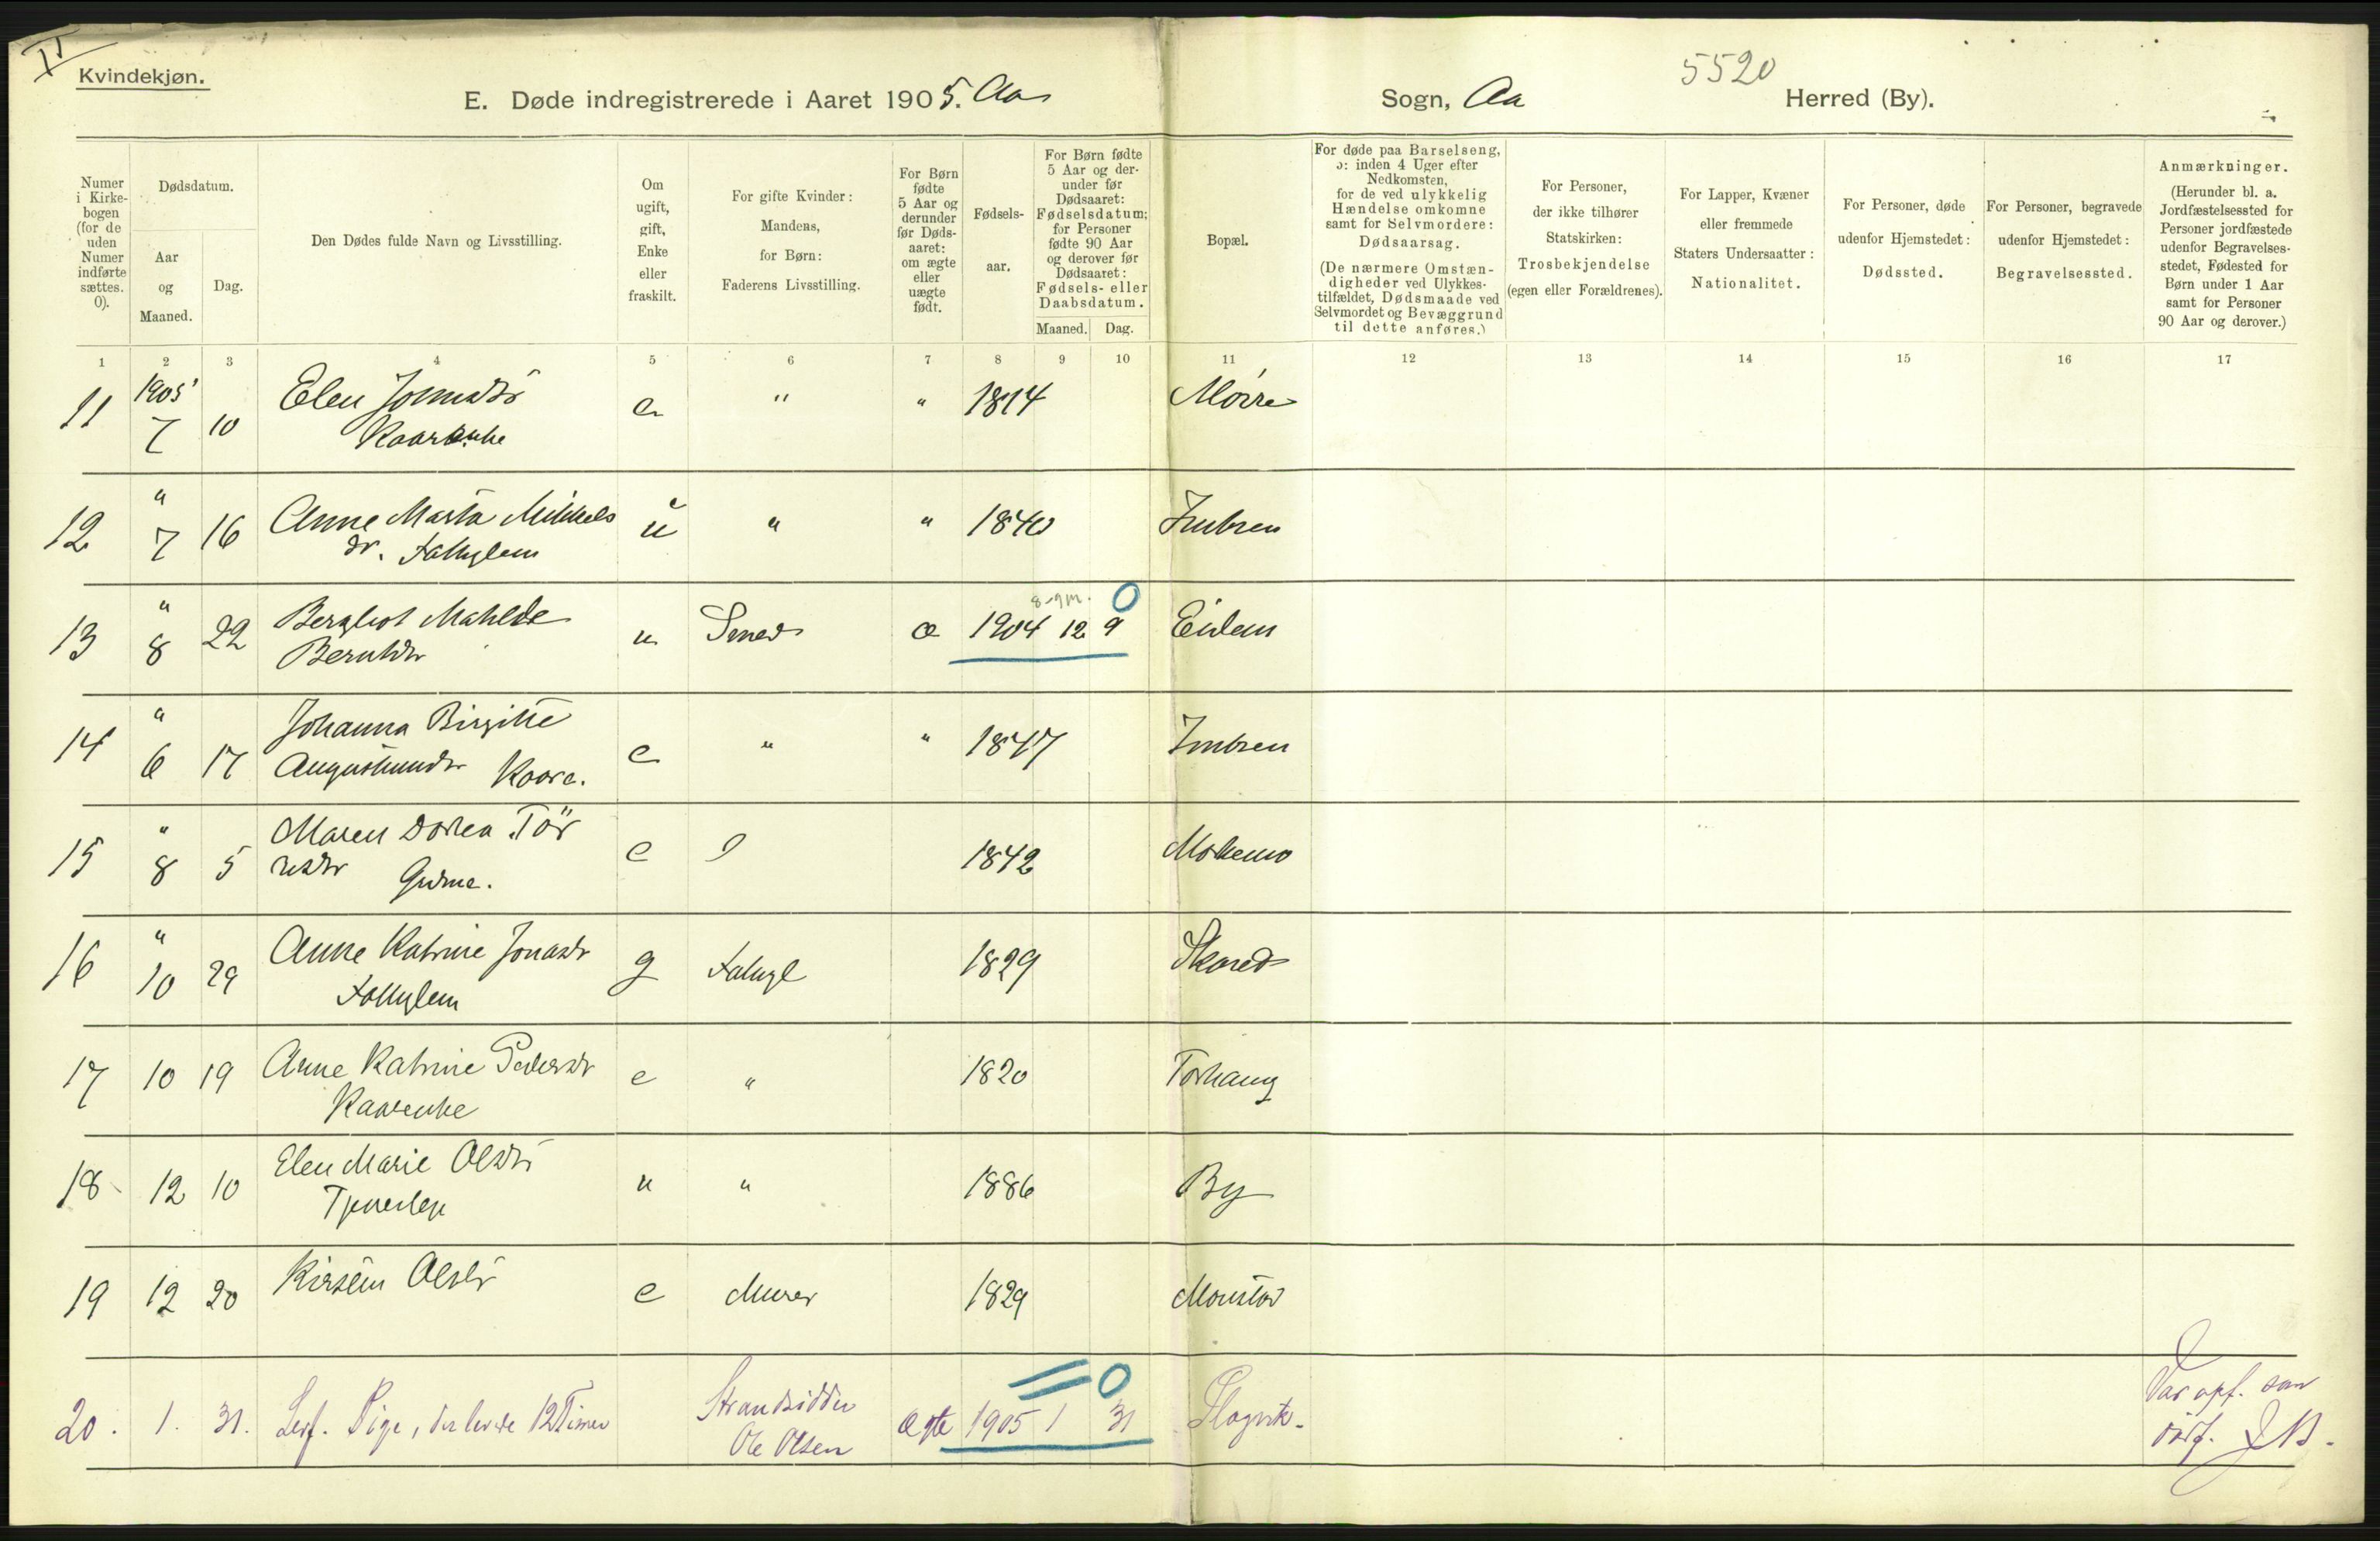 II
Kvindekjøn.
5520
E. Døde indregistrerede i Aaret 1905. Aa Sogn, Aa Herred (By).
Numer
i Kirke-
bogen
(for de
uden
Numer
indførte
sættes.
0).
Dødsdatum.
Aar
og
Maaned.
Dag.
Den Dødes fulde Navn og Livsstilling.
Om
ugift,
gift,
Enke
eller
fraskilt.
For gifte Kvinder:
Mandens,
for Børn:
Faderens Livsstilling.
For Børn
fødte
5 Aar og
derunder
før Døds-
aaret:
om ægte
eller
uægte
født.
Fødsels-
aar.
For Børn fødte
5 Aar og der-
under før
Dødsaaret:
Fødselsdatum;
for Personer
fødte 90 Aar
og derover før
Dødsaaret:
Fødsels- eller
Daabsdatum.
Maaned. Dag.
Bopæl.
For døde paa Barselseng,
ɔ: inden 4 Uger efter
Nedkomsten,
for de ved ulykkelig
Hændelse omkomne
samt for Selvmordere:
Dødsaarsag.
(De nærmere Omstæn-
digheder ved Ulykkes-
tilfældet, Dødsmaade ved
Selvmordet og Bevæggrund
til dette anføres.)
For Personer,
der ikke tilhører
Statskirken:
Trosbekjendelse
(egen eller Forældrenes).
For Lapper, Kvæner
eller fremmede
Staters Undersaatter:
Nationalitet.
For Personer, døde
udenfor Hjemstedet:
Dødssted.
For Personer, begravede
udenfor Hjemstedet:
Begravelsessted.
Anmærkninger.
(Herunder bl. a.
Jordfæstelsessted for
Personer jordfæstede
udenfor Begravelses-
stedet, Fødested for
Børn under 1 Aar
samt for Personer
90 Aar og derover.)
1 2 3 4 5 6 7 8 9 10 11 12 13 14 15 16 17
1905
11 7 10 Elen e " " 1814 Mørre
12 " 7 16 Anne Marta Mikkels u " " 1840
dr.
8-9 M. 0
13 " 8 22 Bergliot Mathilde u Smed æ 1904 12 9 Eidem
Berntdr
14 " 6 17 Johanna Birgitte e " " 1847
Kaare.
15 " 8 5 Maren Dortea Tör e 1842 Mokemo
resdr
16 " 10 29 Anne Katrine Jonasdr g 1829 Skared
17 10 19 Anne Katrine Pedersdr e " 1820 Torhaug
Kaarenke
18 12 10 Elen Marie Olsdr u " 1886 By
19 12 20 Kirsten Olsdr e Murer 1829 Monstad
0
20. 1. 31. Levf. Pige, der levede 12 Timer Strandsidder Ægte 1905 1 31
Ole Olsen
Var opf. som
dødf.